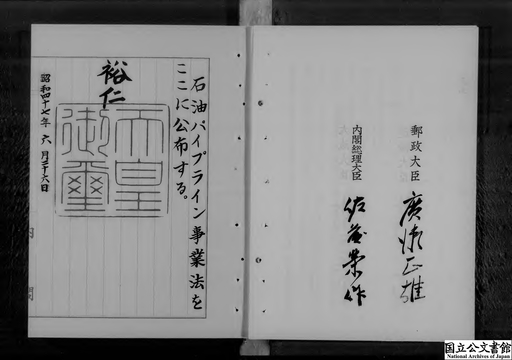 郵政大臣 廣瀬正雄
内閣総理大臣 佐藤榮作
石油パイプライン事業法を
ここに公布する。
裕仁
天皇
御璽
昭和四十七年六月二十六日
内閣
国立公文書館
National Archives of Japan